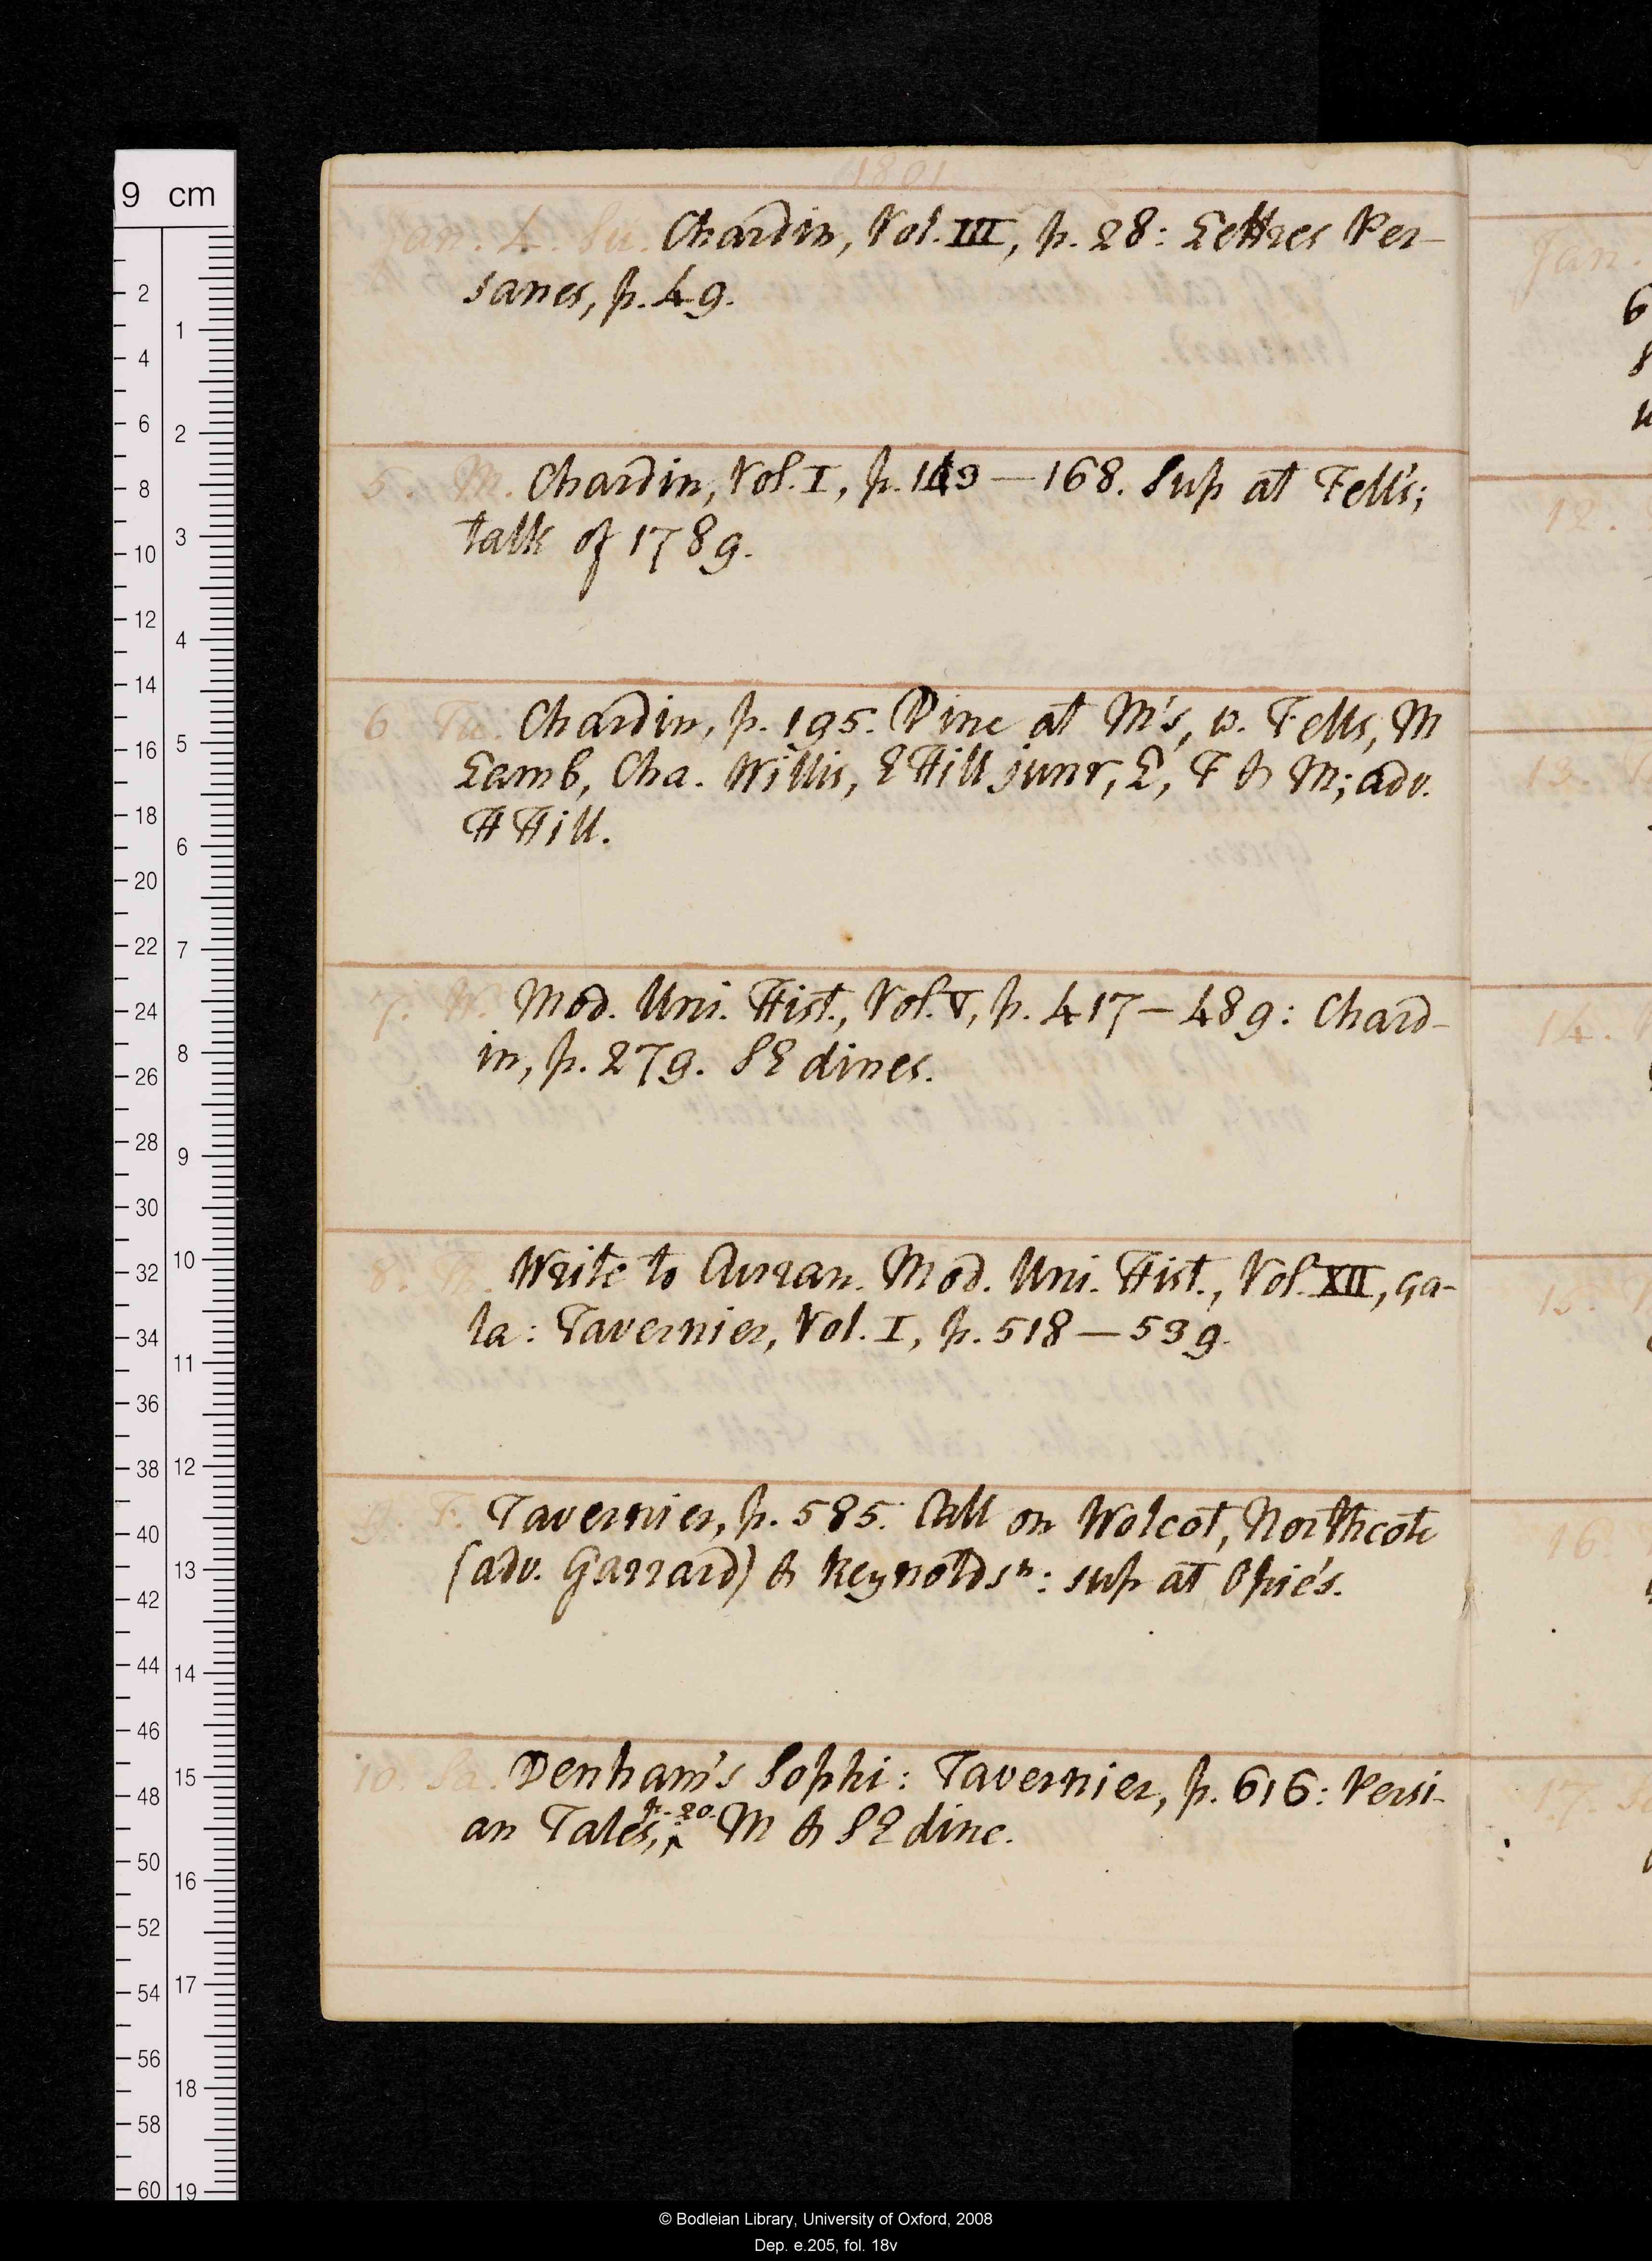 1801
Jan. 4. Su. Chardin, Vol. III, p. 28: Lettres Per-
sanes, p. 49.
5. M. Chardin, Vol. I, p. 149—168. Sup at Fell's;
talk of 1789.
6. Tu. Chardin, p. 195. Dine at M's, w. Fells, M
Lamb, Cha. Willis, E Hill junr, L, F & M; adv.
H Hill.
7. W. Mod. Uni. Hist., Vol. V, p. 417—489: Chard-
in, p. 279. SE dines.
8. Th. Write to Curran. Mod. Uni. Hist., Vol. XII, ça-
la: Tavernier, Vol. I, p. 518—539.
9. F. Tavernier, p. 585. Call on Wolcot, Northcote
(adv. Garrard) & Reynoldsn: sup at Opie's.
10. Sa. Denham's Sophi: Tavernier, p. 616: Persi-
an Tales, p. 20. M & SE dine.
Jan.
12.
13.
14.
15.
16.
17.
9 cm
2 4 6 8 10 12 14 16 18 20 22 24 26 28 30 32 34 36 38 40 42 44 46 48 50 52 54 56 58 60
1 2 3 4 5 6 7 8 9 10 11 12 13 14 15 16 17 18 19
© Bodleian Library, University of Oxford, 2008
Dep. e.205, fol. 18v